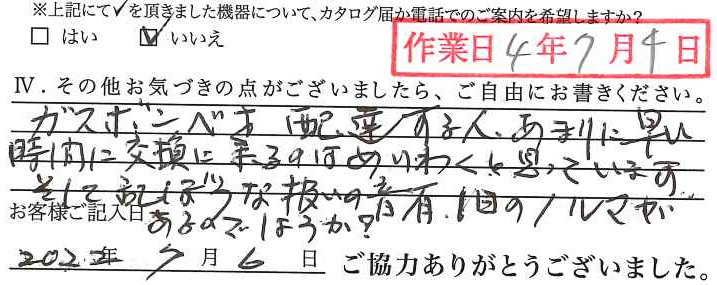 ※上記にて✓を頂きました機器について、カタログ届か電話でのご案内を希望しますか?
□ はい ☑ いいえ
作業日 4年7月4日
Ⅳ.その他お気づきの点がございましたら、ご自由にお書きください。
ガスボンベを配達する人、あまりに早い
時間に交換に来るのはめいわくと思っています
そして乱ぼうな扱いの音有、1日のノルマが
あるのでしょうか?
お客様ご記入日
2022年 7月 6日 ご協力ありがとうございました。